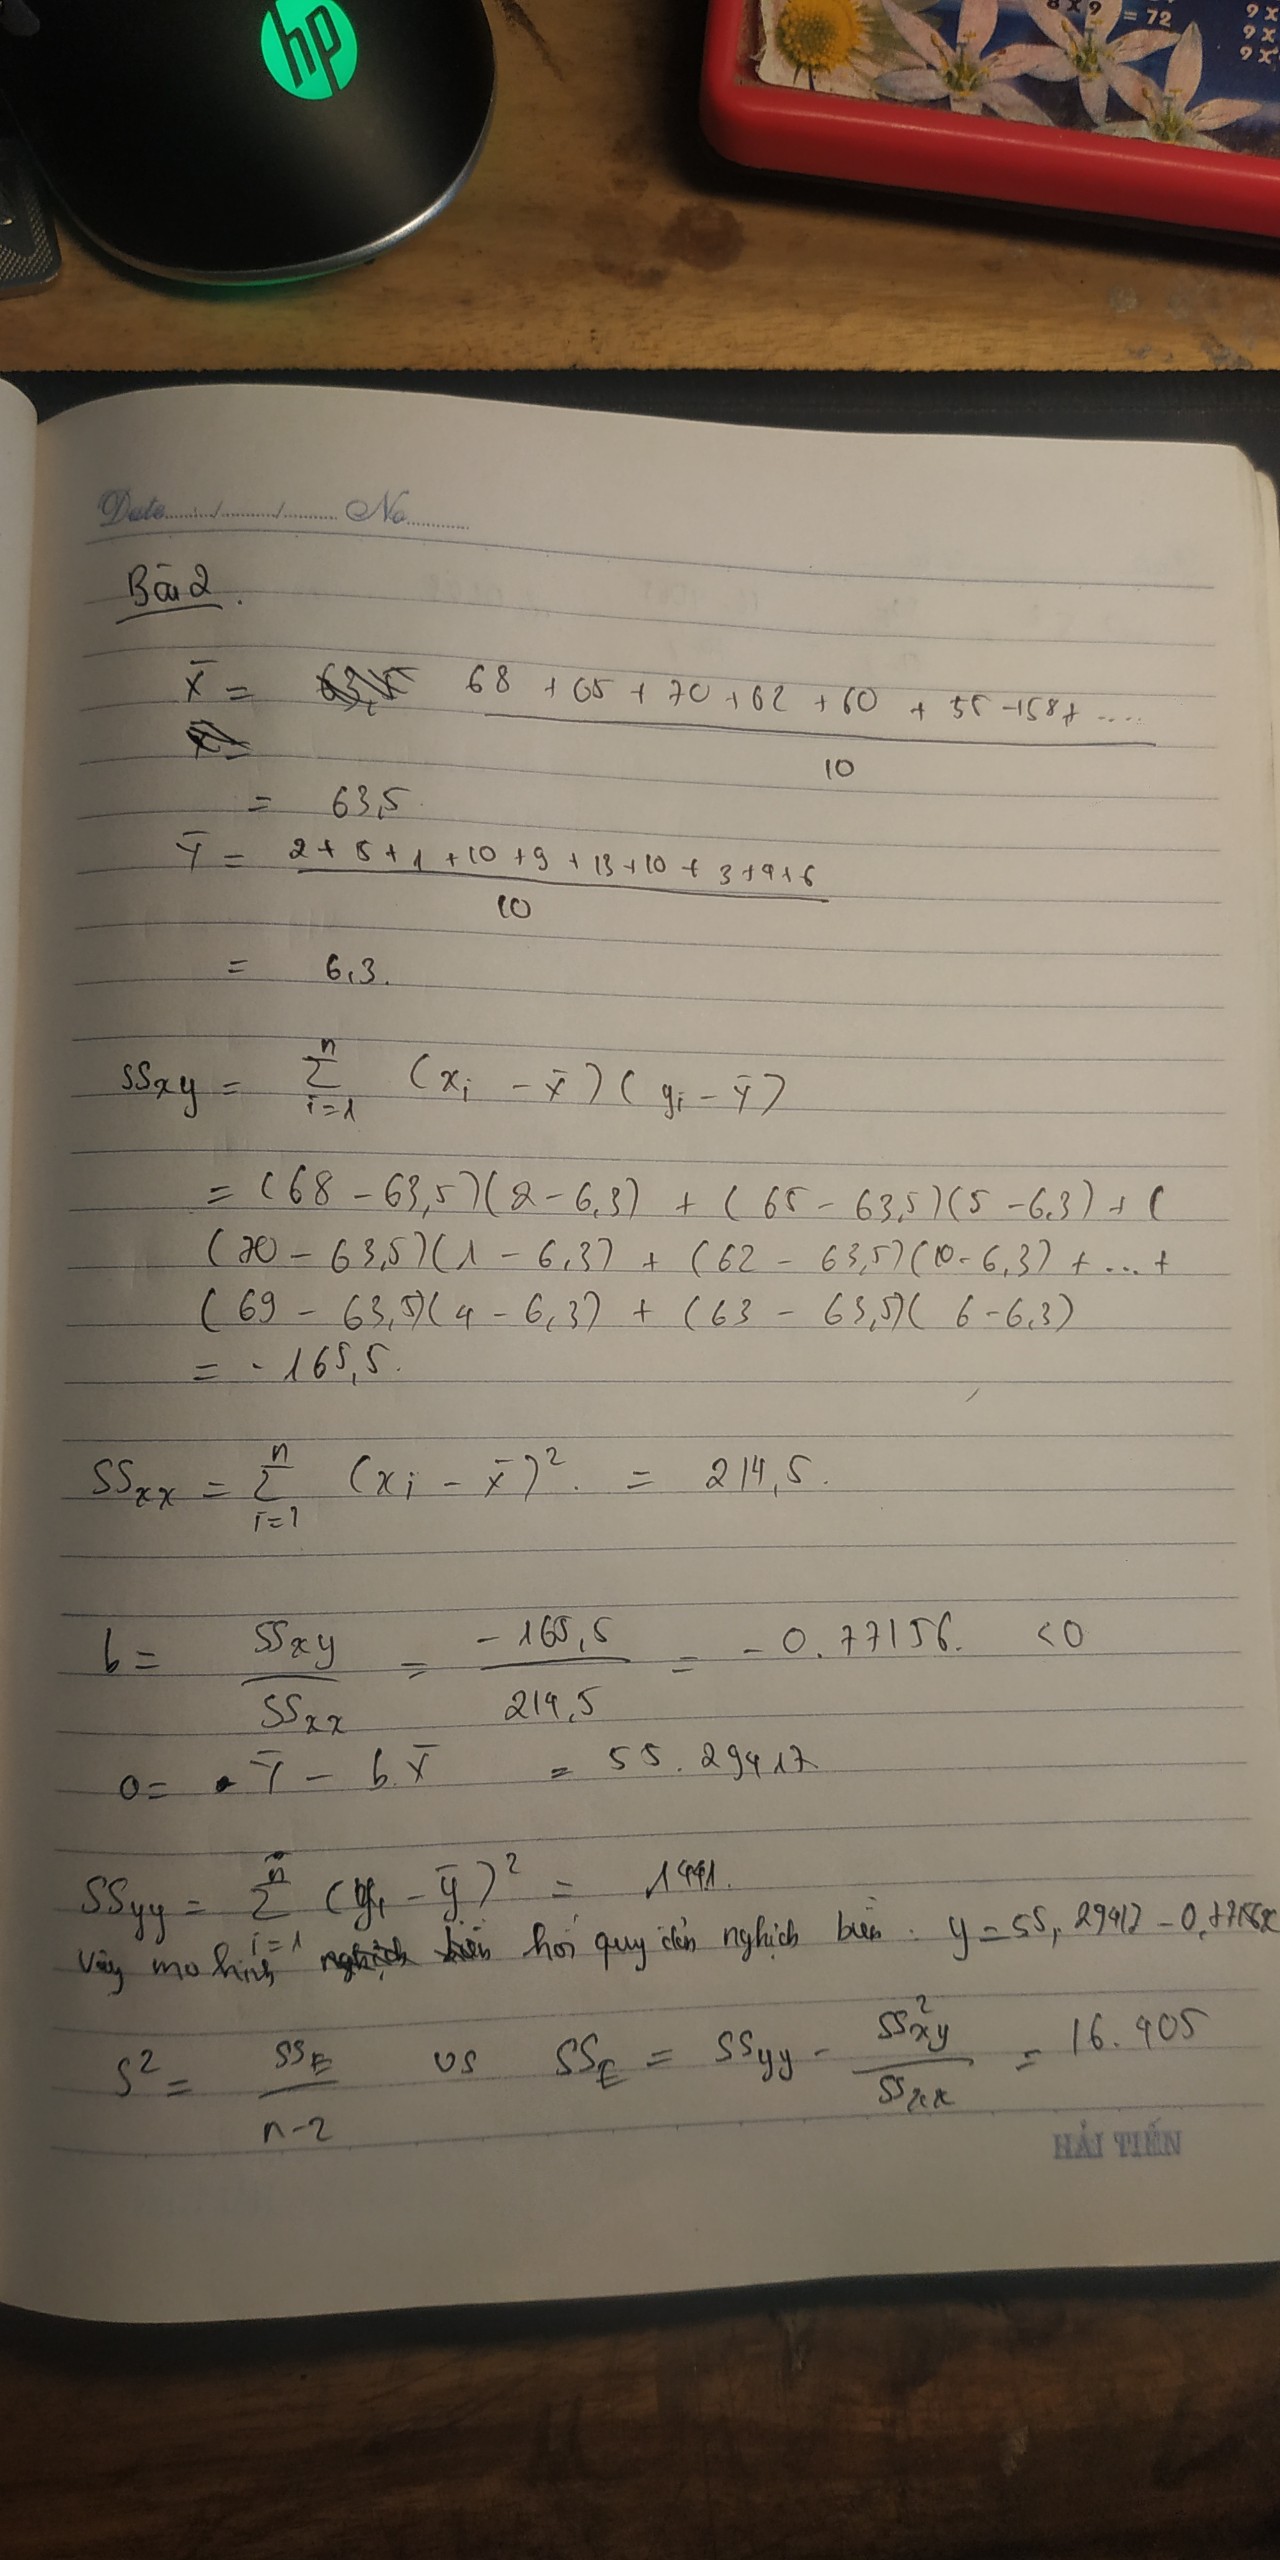 hp
8 x 9 = 72
9 x
9 x
9 x
Date....../........./......... No..........
Bài 2.
X̄ = 68 + 65 + 70 + 62 + 60 + 55 + 58 + ....
10
= 63,5.
Ȳ = 2 + 5 + 1 + 10 + 9 + 13 + 10 + 3 + 4 + 6
10
= 6,3.
SSxy = n Σ i=1 (xi - x̄)(yi - ȳ)
= (68 - 63,5)(2 - 6,3) + (65 - 63,5)(5 - 6,3) + (
(70 - 63,5)(1 - 6,3) + (62 - 63,5)(10 - 6,3) + ... +
(69 - 63,5)(4 - 6,3) + (63 - 63,5)(6 - 6,3)
= -165,5.
SSxx = n Σ i=1 (xi - x̄)². = 214,5.
b = SSxy / SSxx = -165,5 / 214,5 = -0.77156. <0
a = Ȳ - b.X̄ = 55.29417
SSyy = n Σ i=1 (yi - ȳ)² = 144,1.
Vậy mô hình hồi quy dần nghịch biến : y = 55,29417 - 0,77156x
S² = SSE / n-2 vs SSE = SSyy - SS²xy / SSxx = 16.405
HẢI TIẾN